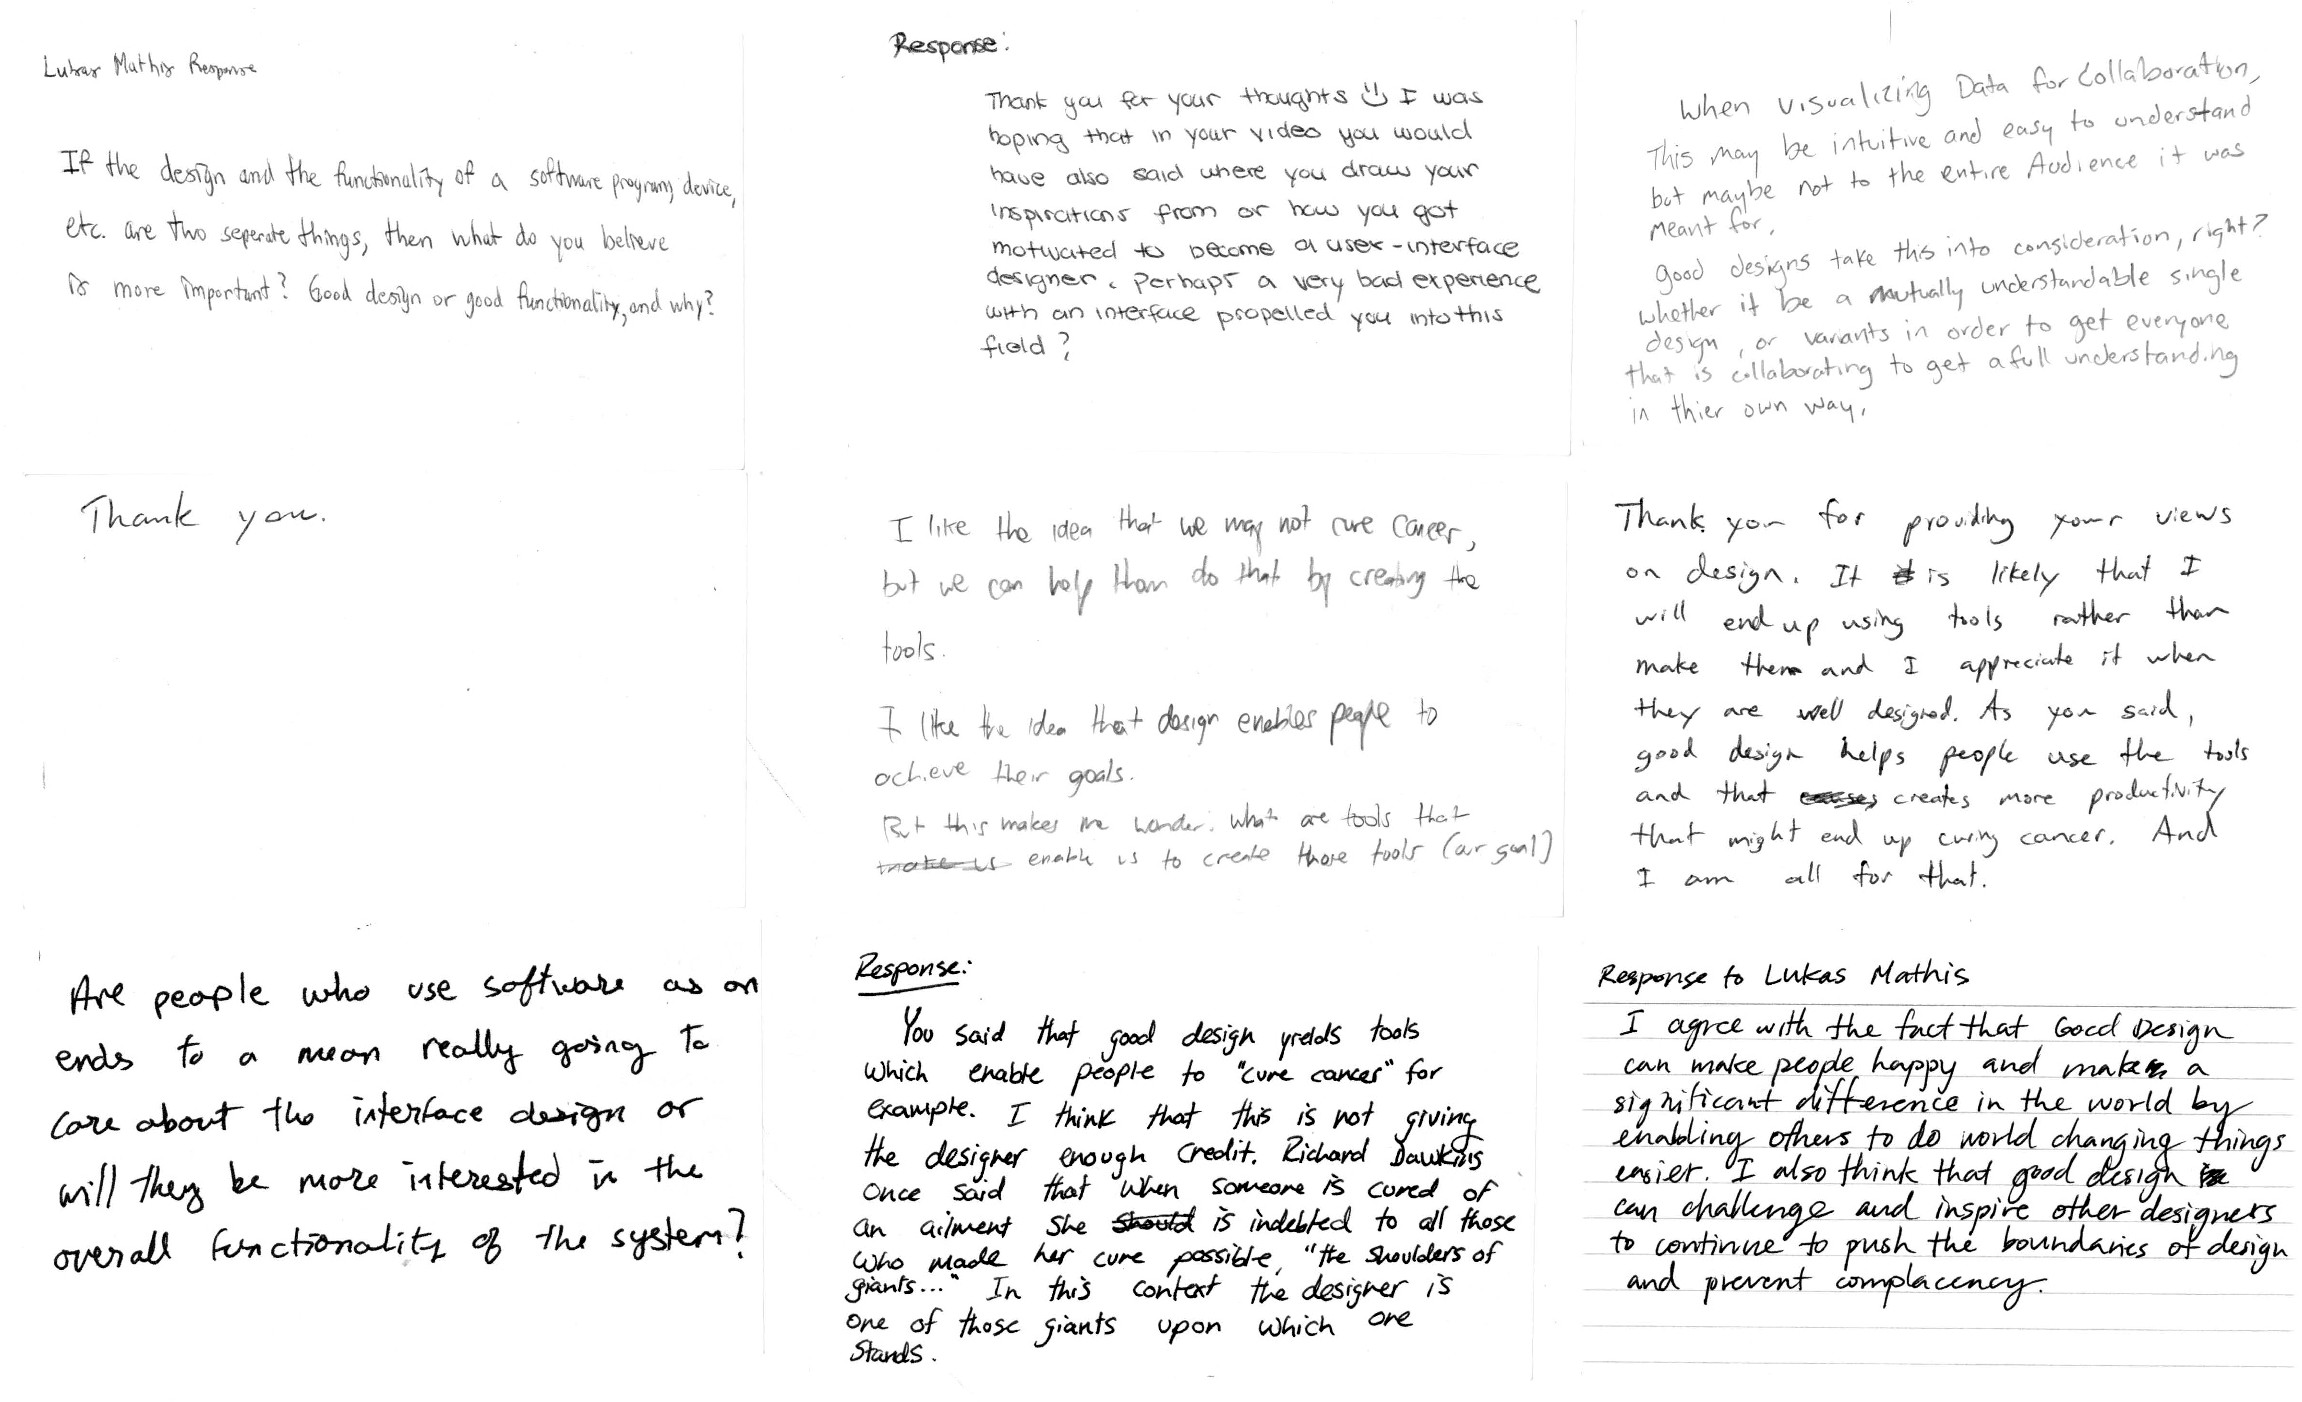 Lukas Mathis Response
If the design and the functionality of a software program, device,
etc. are two seperate things, then what do you believe
is more important? Good design or good functionality, and why?
Response:
Thank you for your thoughts :) I was
hoping that in your video you would
have also said where you draw your
inspirations from or how you got
motivated to become a user-interface
designer. Perhaps a very bad experience
with an interface propelled you into this
field?
When visualizing Data for Collaboration,
This may be intuitive and easy to understand
but maybe not to the entire Audience it was
meant for.
good designs take this into consideration, right?
whether it be a mutually understandable single
design, or variants in order to get everyone
that is collaborating to get a full understanding
in thier own way.
Thank you.
I like the idea that we may not cure cancer,
but we can help them do that by creating the
tools.
I like the idea that design enables people to
achieve their goals.
But this makes me wonder: what are tools that
make us enable us to create those tools (our goal)
Thank you for providing your views
on design. It is likely that I
will end up using tools rather than
make them and I appreciate it when
they are well designed. As you said,
good design helps people use the tools
and that creates more productivity
that might end up curing cancer. And
I am all for that.
Are people who use software as an
ends to a mean really going to
care about the interface design or
will they be more interested in the
overall functionality of the system?
Response:
You said that good design yields tools
which enable people to "cure cancer" for
example. I think that this is not giving
the designer enough credit. Richard Dawkins
once said that when someone is cured of
an ailment she should is indebted to all those
who made her cure possible, "the shoulders of
giants..." In this context the designer is
one of those giants upon which one
stands.
Response to Lukas Mathis
I agree with the fact that Good Design
can make people happy and make a
significant difference in the world by
enabling others to do world changing things
easier. I also think that good design
can challenge and inspire other designers
to continue to push the boundaries of design
and prevent complacency.